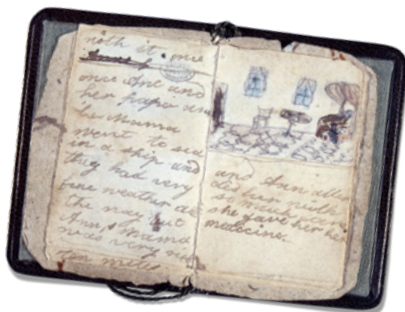 with it. one
once Ant and
her papa and
her Mamma
went to sea
in a ship and
they had very
fine weather all
the way but
Ann's Mama
was very
and Ann atten
ded her with
so much
she gave her her
medecine.